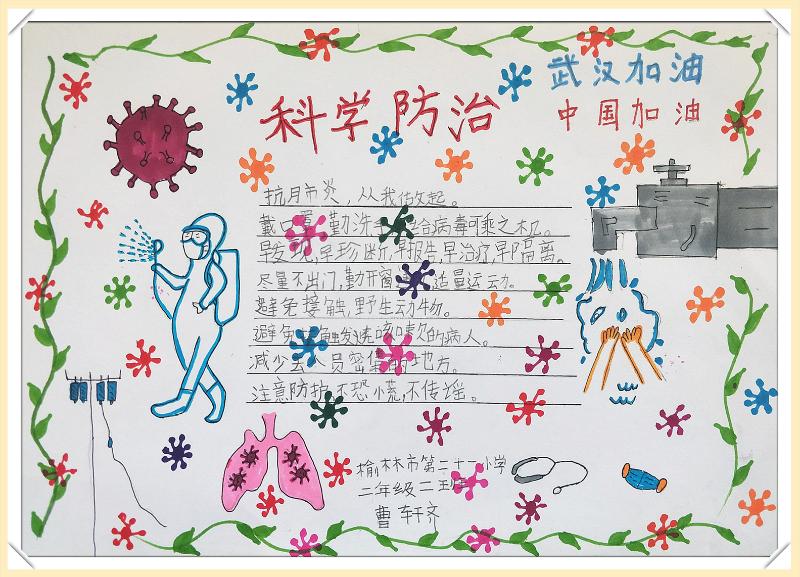 科学防治
武汉加油
中国加油
抗月市炎，从我做起。
戴口罩，勤洗手，给病毒可乘之机。
早发现，早珍断，早报告，早治疗，早隔离。
尽量不出门，勤开窗 适量运动。
避免接触，野生动物。
避免接触发烧咳嗽的病人。
减少去人员密集的地方。
注意防护，不恐慌，不传谣。
榆林市第二十一小学
二年级二班
曹轩齐